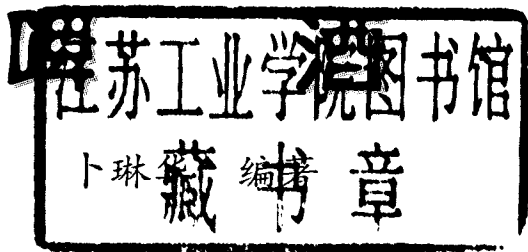 江苏工业学院图书馆
藏书章
卜琳华 编著